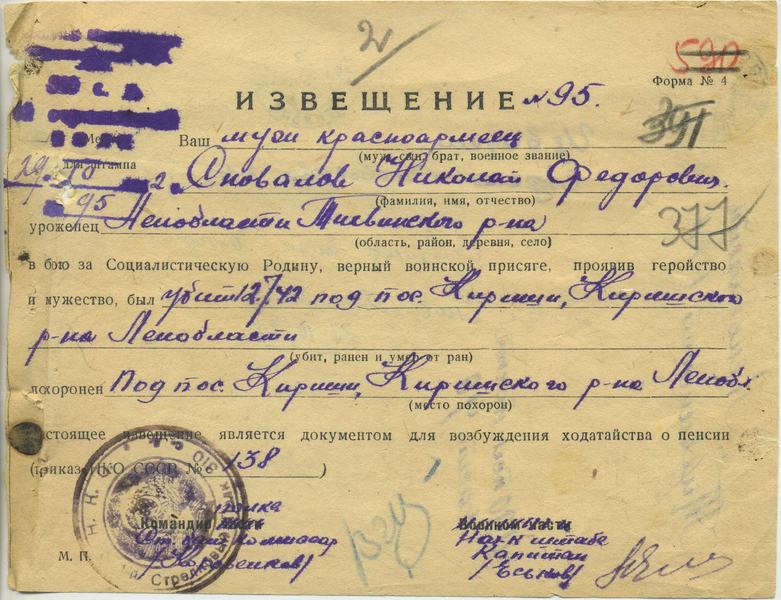 2/
590
Форма № 4
ИЗВЕЩЕНИЕ №95.
Ваш муж красноармеец
(муж, сын, брат, военное звание)
для штампа
Николай Федорович
(фамилия, имя, отчество)
95
уроженец Ленобласти р-на
377
(область, район, деревня, село)
в бою за Социалистическую Родину, верный воинской присяге, проявив геройство
и мужество, был убит 12/7 42 под пос. Кириши, Киришского
р-на Ленобласти
(убит, ранен и умер от ран)
похоронен Под пос. Кириши, Киришского р-на Ленобл.
(место похорон)
Настоящее извещение является документом для возбуждения ходатайства о пенсии
(приказ НКО СССР № 138 )
полка
Командир части
Военком части
Ст. бат. комиссар
Нач штаба
Капитан
/Еськов/
М. П.
Н. К. О.
Стрелковый